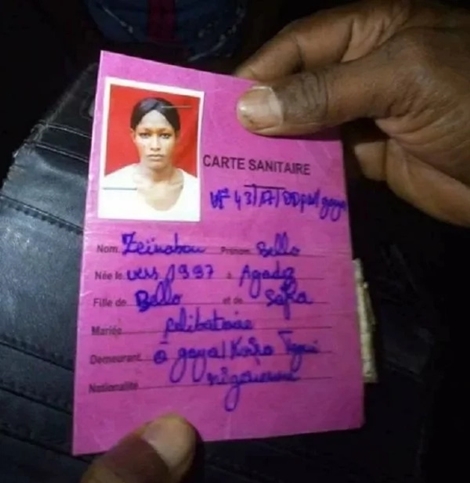 CARTE SANITAIRE
N° 43/17/DDpal/gaya
Nom Zeïnabou Prénom Bello
Née le vers 1997 à Agadez
Fille de Bello et de Safia
Mariée célibataire
Demeurant à gaya/Kofra Tegui
Nationalité nigérienne